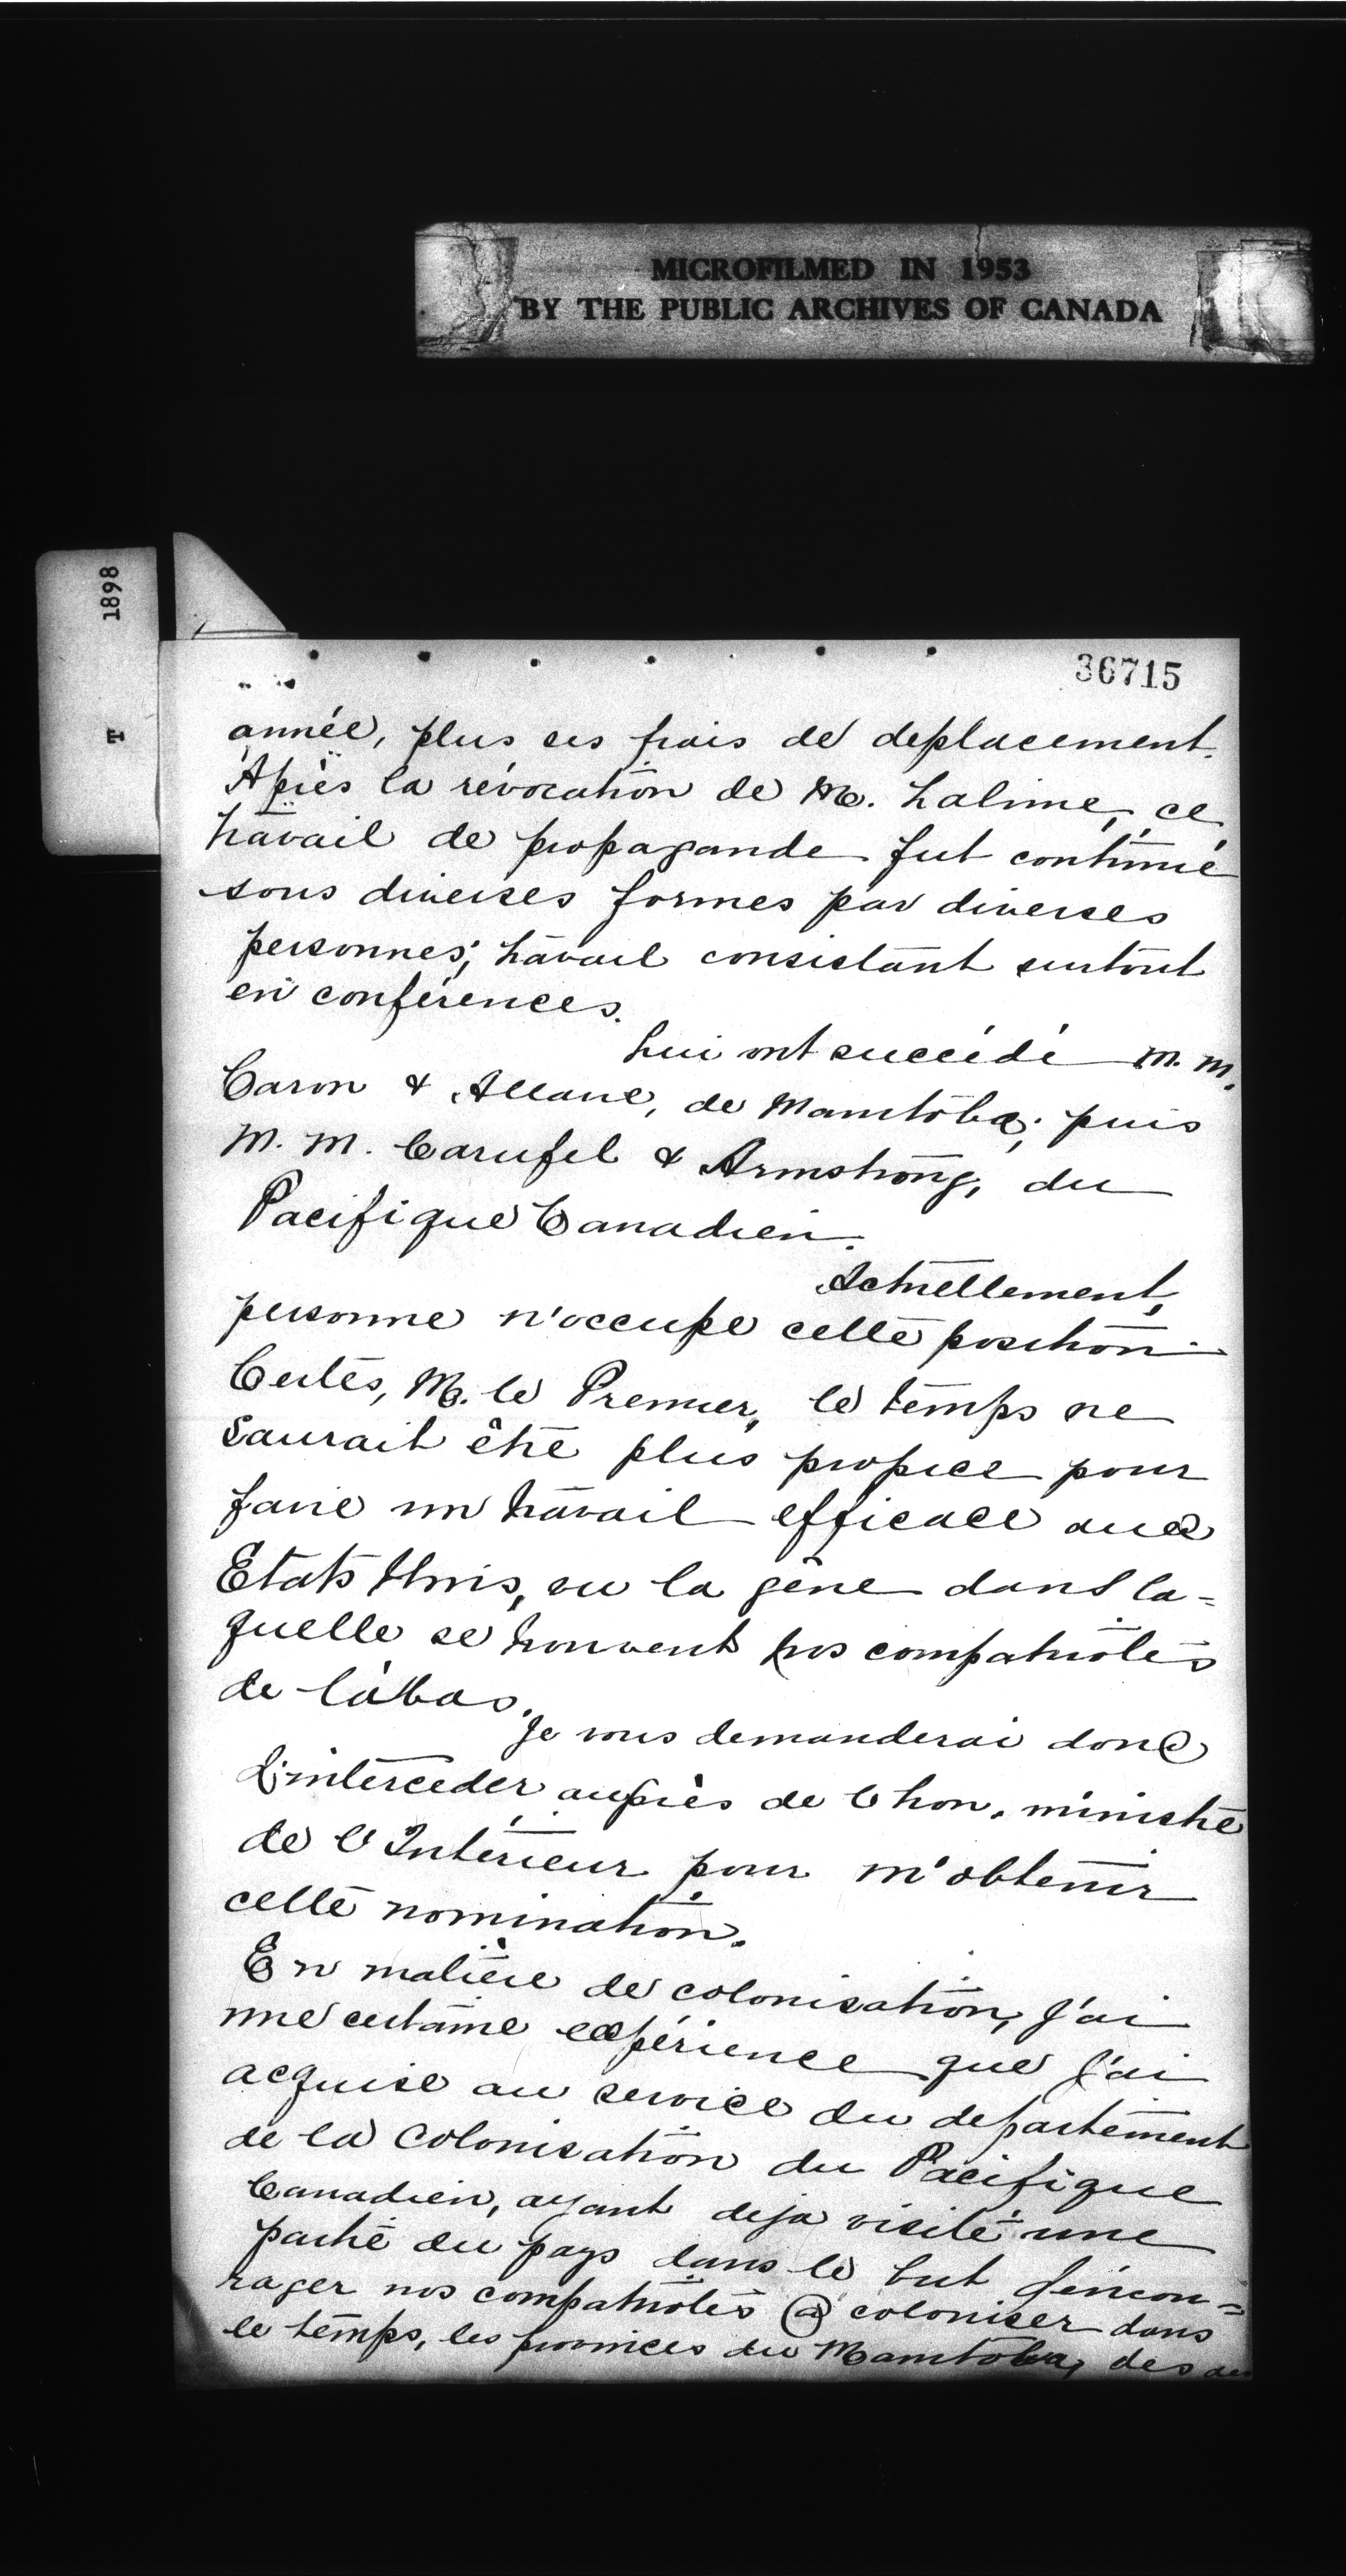 MICROFILMED IN 1953
BY THE PUBLIC ARCHIVES OF CANADA
1898
T
36715
année, plus ses frais de deplacement.
Après la révocation de M. Lalime, ce
travail de propagande fut continué
sous diverses formes par diverses
personnes; travail consistant surtout
en conférences.
Lui ont succédé M. M.
Caron & Allaire, de Manitoba; puis
M. M. Carufel & Armstrong, du
Pacifique Canadien.
Actuellement,
personne n'occupe cette position.
Certes, M. le Premier, le temps ne
saurait être plus propice pour
faire un travail efficace aux
Etats Unis, vu la gêne dans la=
quelle se trouvent nos compatriotes
de làbas.
Je vous demanderai donc
d'intercéder auprès de l'hon. ministre
de l'Intérieur pour m'obtenir
cette nomination.
En matière de colonisation, j'ai
une certaine expérience que j'ai
acquise au service du departement
de la Colonisation du Pacifique
Canadien, ayant deja visité une
partie du pays dans le but d'encou=
rager nos compatriotes à coloniser dans
le temps, les provinces du Manitoba, des